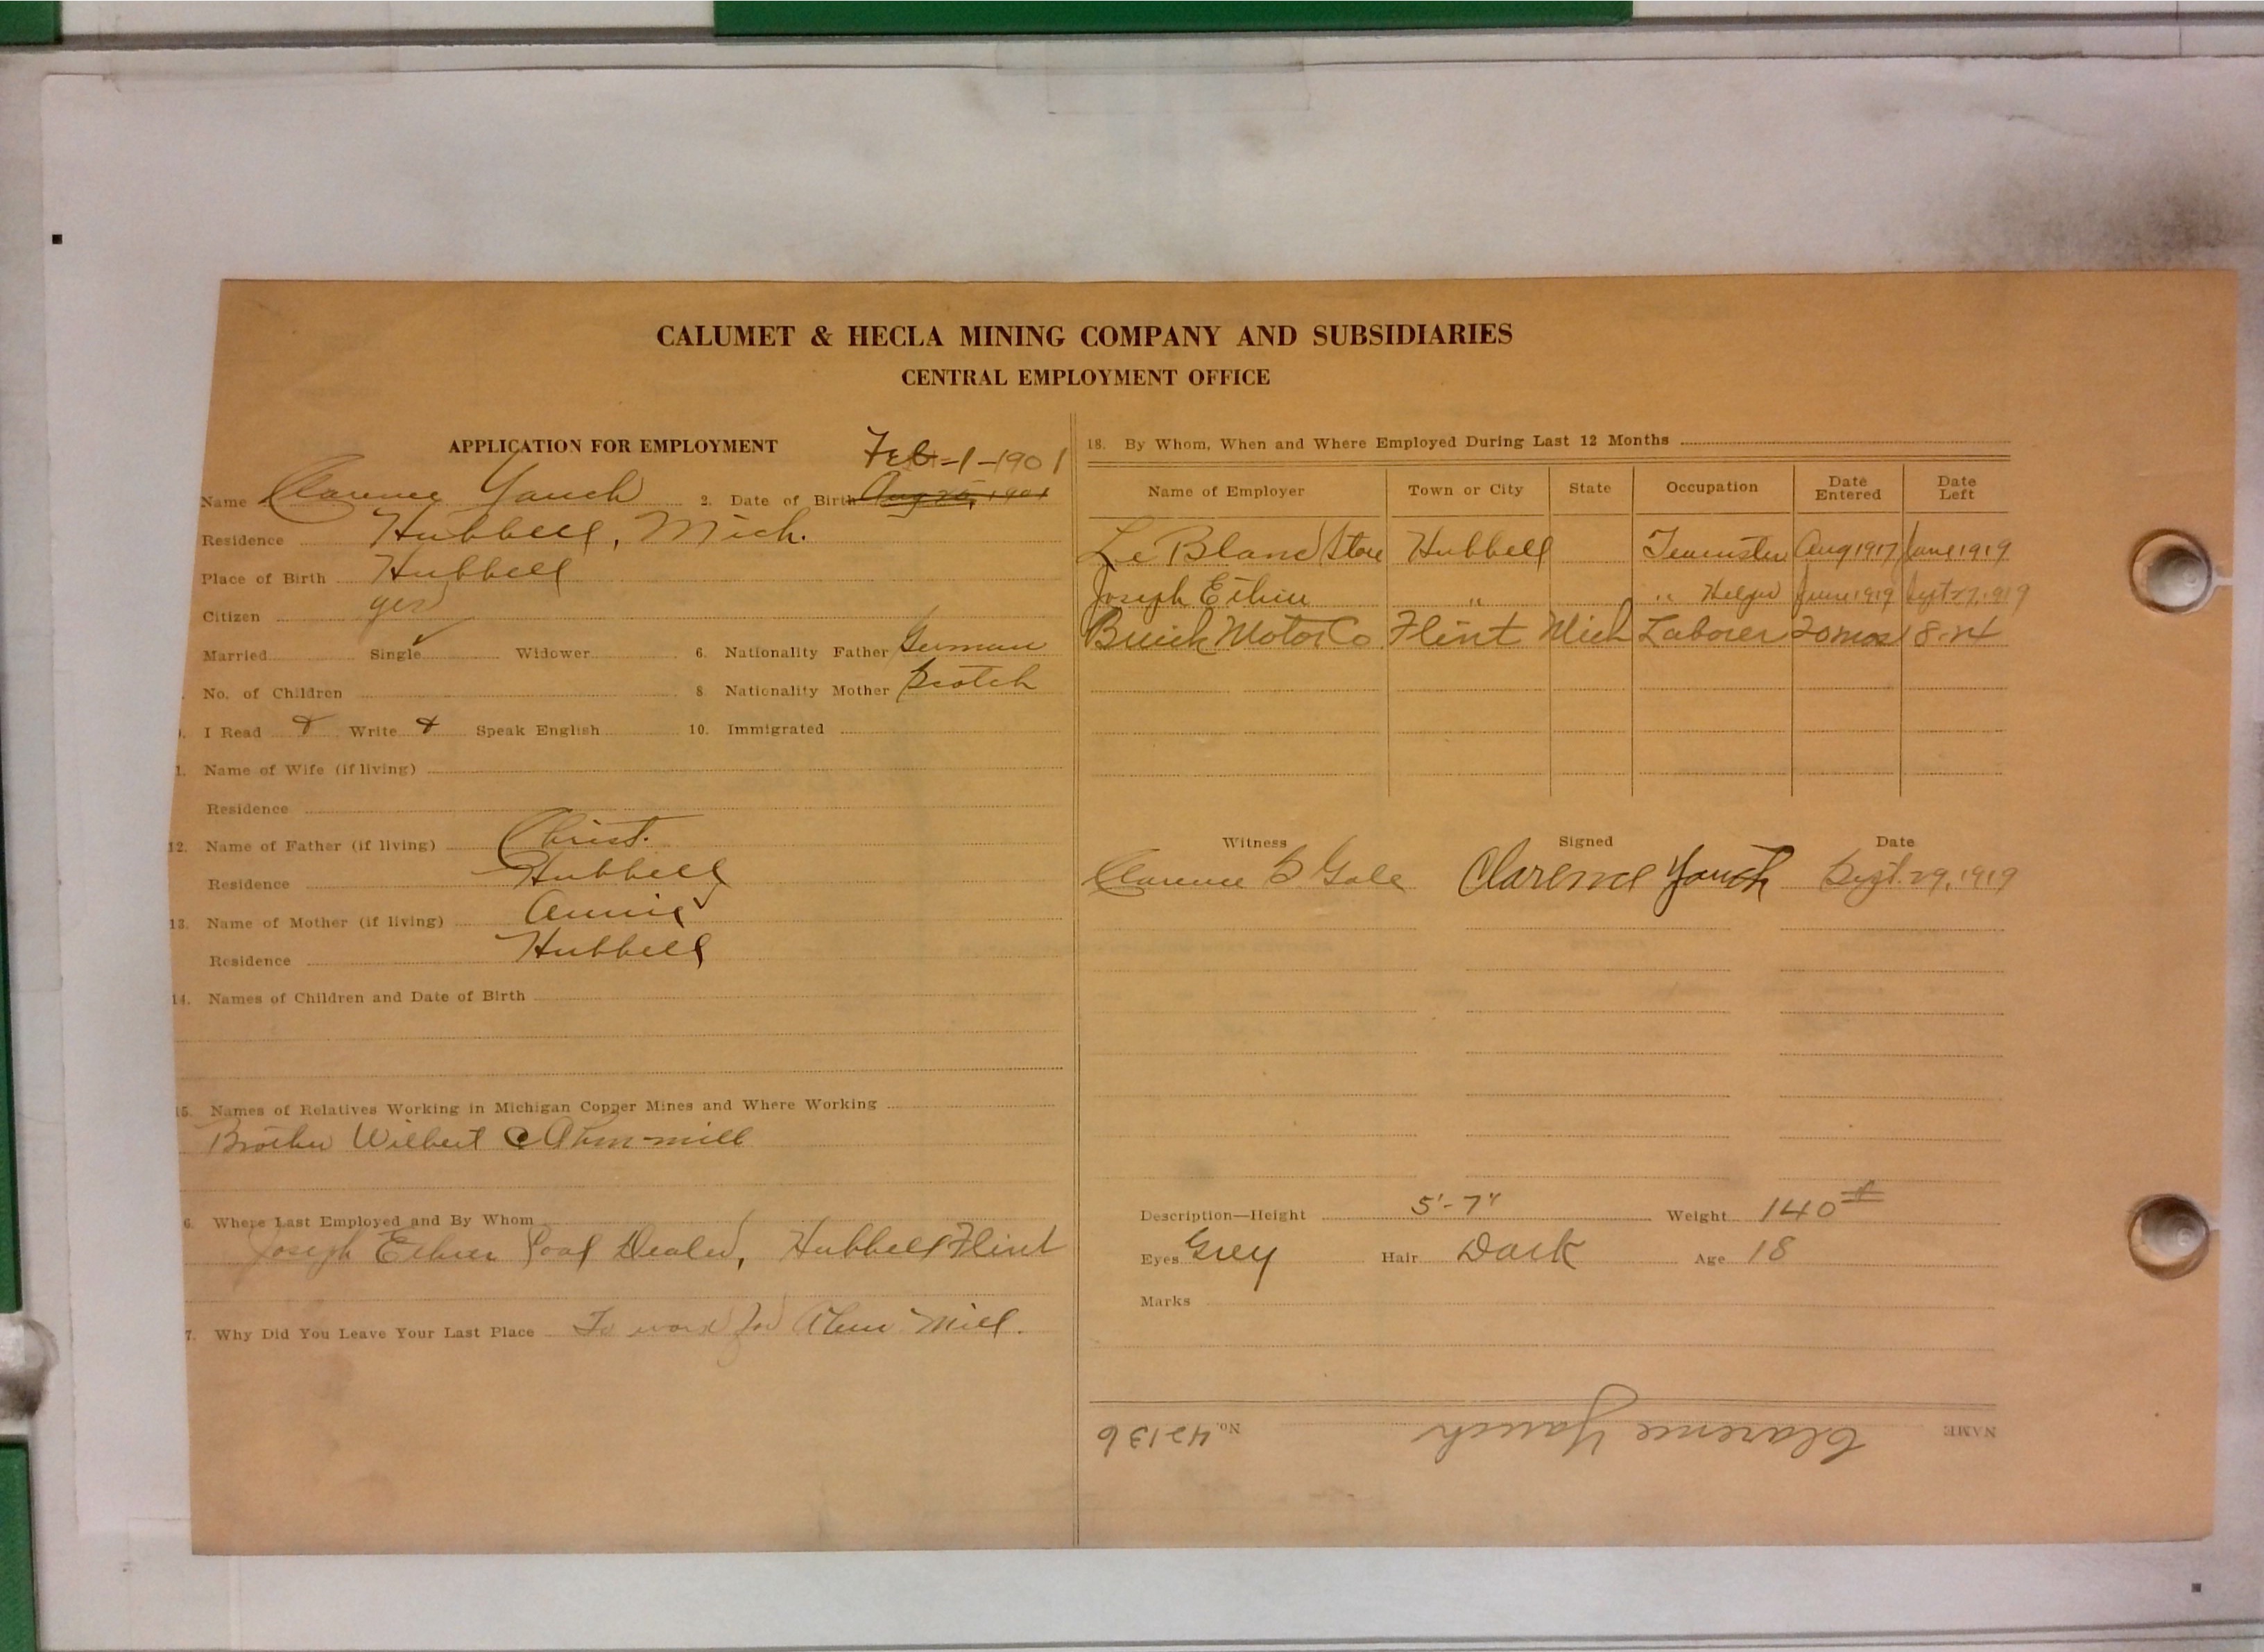 CALUMET & HECLA MINING COMPANY AND SUBSIDIARIES
CENTRAL EMPLOYMENT OFFICE
APPLICATION FOR EMPLOYMENT
Feb-1-1901
Name Clarence Yauch 2. Date of Birth Aug 25, 1901
Residence Hubbell, Mich.
Place of Birth Hubbell
Citizen yes
Married Single ✓ Widower 6. Nationality Father German
No. of Children 8 Nationality Mother Scotch
I Read + Write + Speak English 10. Immigrated
1. Name of Wife (if living)
Residence
12. Name of Father (if living) Christ.
Residence Hubbell
13. Name of Mother (if living) Annie
Residence Hubbell
14. Names of Children and Date of Birth
15. Names of Relatives Working in Michigan Copper Mines and Where Working
Brother Wilbert @ Ahm-mill
6. Where Last Employed and By Whom
Joseph Ethier Coal Dealer, Hubbell Flint
7. Why Did You Leave Your Last Place To work for Ahm Mill.
18. By Whom, When and Where Employed During Last 12 Months
Name of Employer Town or City State Occupation Date Entered Date Left
Le Blanc Store Hubbell Teamster Aug 1917 June 1919
Joseph Ethier " " Helper June 1919 Sept 27, 1919
Buick Motor Co. Flint Mich Laborer 20 mos 8-24
Witness Signed Date
Clarence B Gale Clarence Yauch Sept. 29, 1919
Description—Height 5'-7" Weight 140#
Eyes Grey Hair Dark Age 18
Marks
NAME Clarence Yauch No. 42136